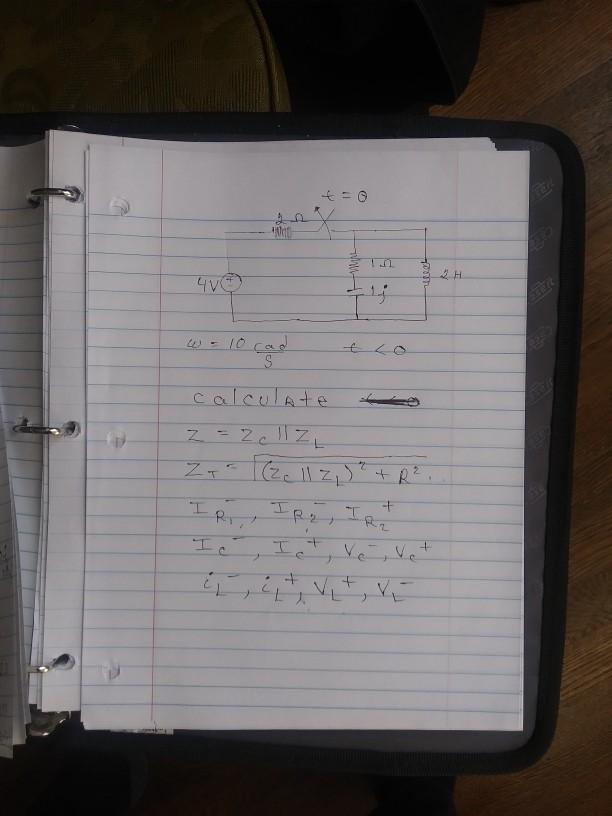 t = 0
2 Ω
1 Ω
2 H
4V
+
1j
ω = 10 rad/s
t < 0
calculate
Z = Z_C || Z_L
Z_T = √((Z_C || Z_L)² + R²
I_R1⁻, I_R2⁻, I_R2⁺
I_C⁻, I_C⁺, V_C⁻, V_C⁺
i_L⁻, i_L⁺, V_L⁺, V_L⁻